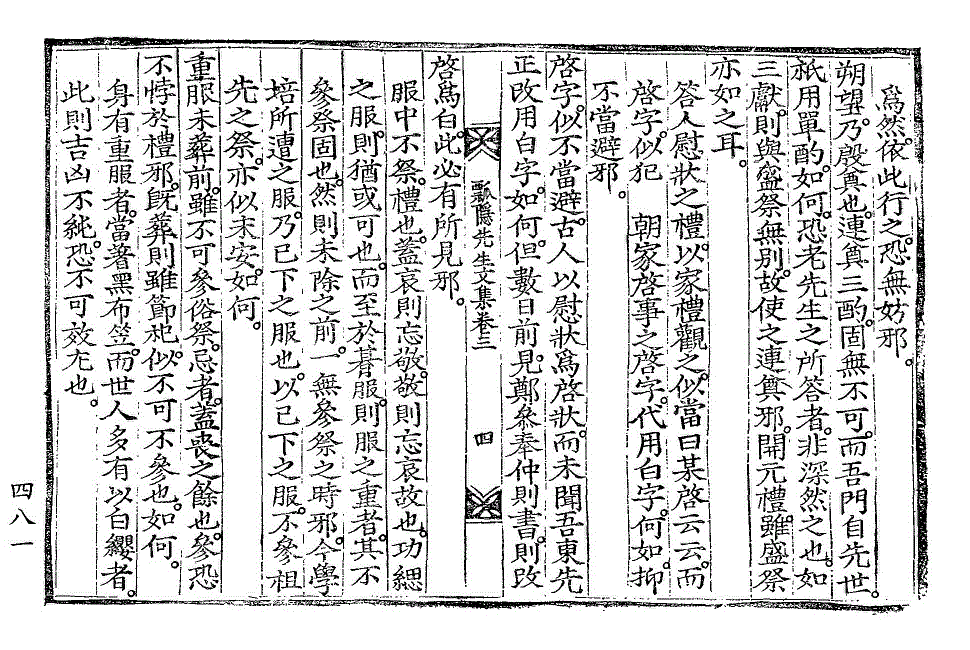 爲然。依此行之。恐無妨邪。
朔望。乃殷奠也。連奠三酌。固無不可。而吾門自先世。
祇用單酌。如何。恐老先生之所答者。非深然之也。如
三獻。則與盛祭無別。故使之連奠邪。開元禮。雖盛祭
亦如之耳。
答人慰狀之禮。以家禮觀之。似當曰某啓云云。而
啓字。似犯 朝家啓事之啓字。代用白字。何如。抑
不當避邪。
啓字。似不當避。古人以慰狀爲啓狀。而未聞吾東先
正改用白字。如何。但數日前。見鄭參奉仲則書。則改
啓爲白。此必有所見邪。
服中不祭。禮也。蓋哀則忘敬。敬則忘哀故也。功緦
之服。則猶或可也。而至於朞服。則服之重者。其不
參祭固也。然則未除之前。一無參祭之時邪。今學
培所遭之服。乃已下之服也。以已下之服。不參祖
先之祭。亦似未安。如何。
重服未葬前。雖不可參俗祭。忌者。蓋喪之餘也。參恐
不悖於禮邪。旣葬則雖節祀。似不可不參也。如何。
身有重服者。當著黑布笠。而世人多有以白纓者。
此則吉凶不純。恐不可效尤也。
先生文集卷三
四
四八一